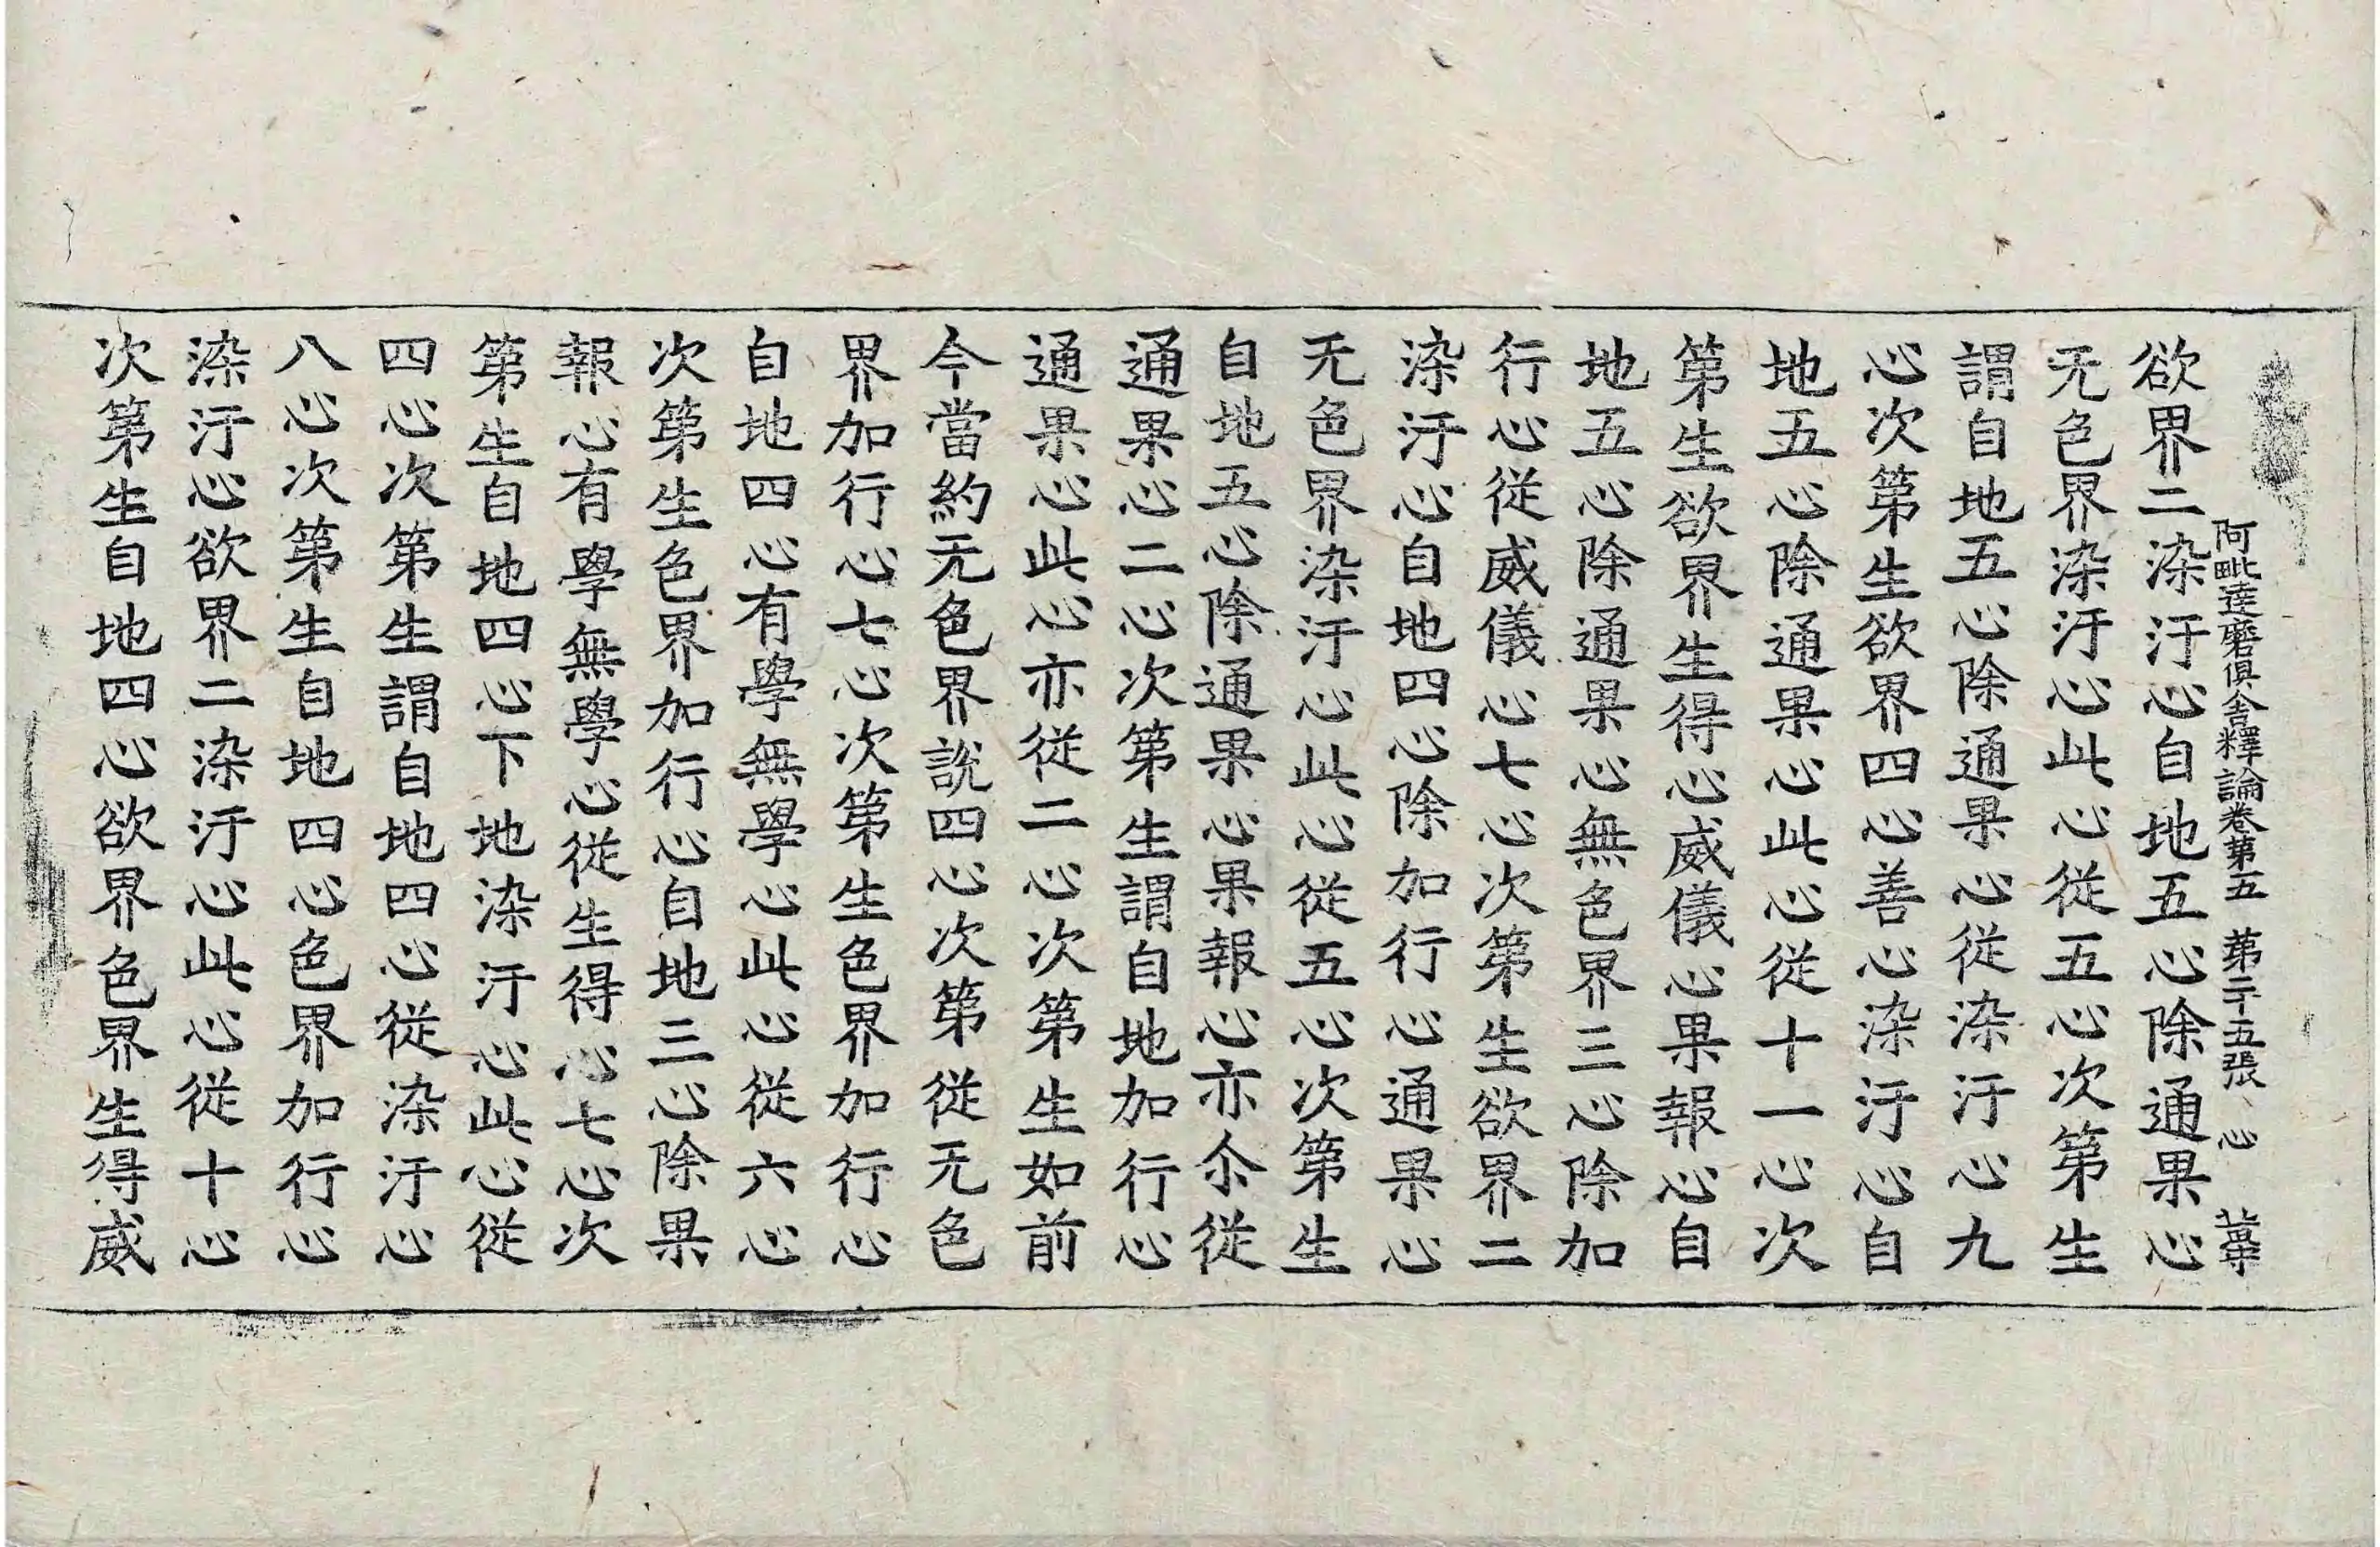 阿毗達磨俱舍釋論卷第五　第二十五張　心
欲界二染汙心自地五心除通果心
无色界染汙心此心從五心次第生
謂自地五心除通果心從染汙心九
心次第生欲界四心善心染汙心自
地五心除通果心此心從十一心次
第生欲界生得心威儀心果報心自
地五心除通果心無色界三心除加
行心從威儀心七心次第生欲界二
染汙心自地四心除加行心通果心
无色界染汙心此心從五心次第生
自地五心除通果心果報心亦尒從
通果心二心次第生謂自地加行心
通果心此心亦從二心次第生如前
今當約无色界說四心次第從无色
界加行心七心次第生色界加行心
自地四心有學無學心此心從六心
次第生色界加行心自地三心除果
報心有學無學心從生得心七心次
第生自地四心下地染汙心此心從
四心次第生謂自地四心從染汙心
八心次第生自地四心色界加行心
染汙心欲界二染汙心此心從十心
次第生自地四心欲界色界生得威